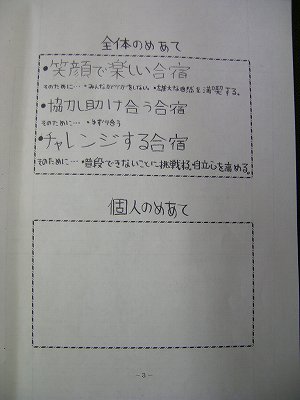 全体のめあて
・笑顔で楽しい合宿
そのために… ・みんながケガをしない。・雄大な自然を満喫する。
・協力し助け合う合宿
そのために… ・ゆずり合う
・チャレンジする合宿
そのために… ・普段できないことに挑戦し、自立心を高める。
個人のめあて
-3-